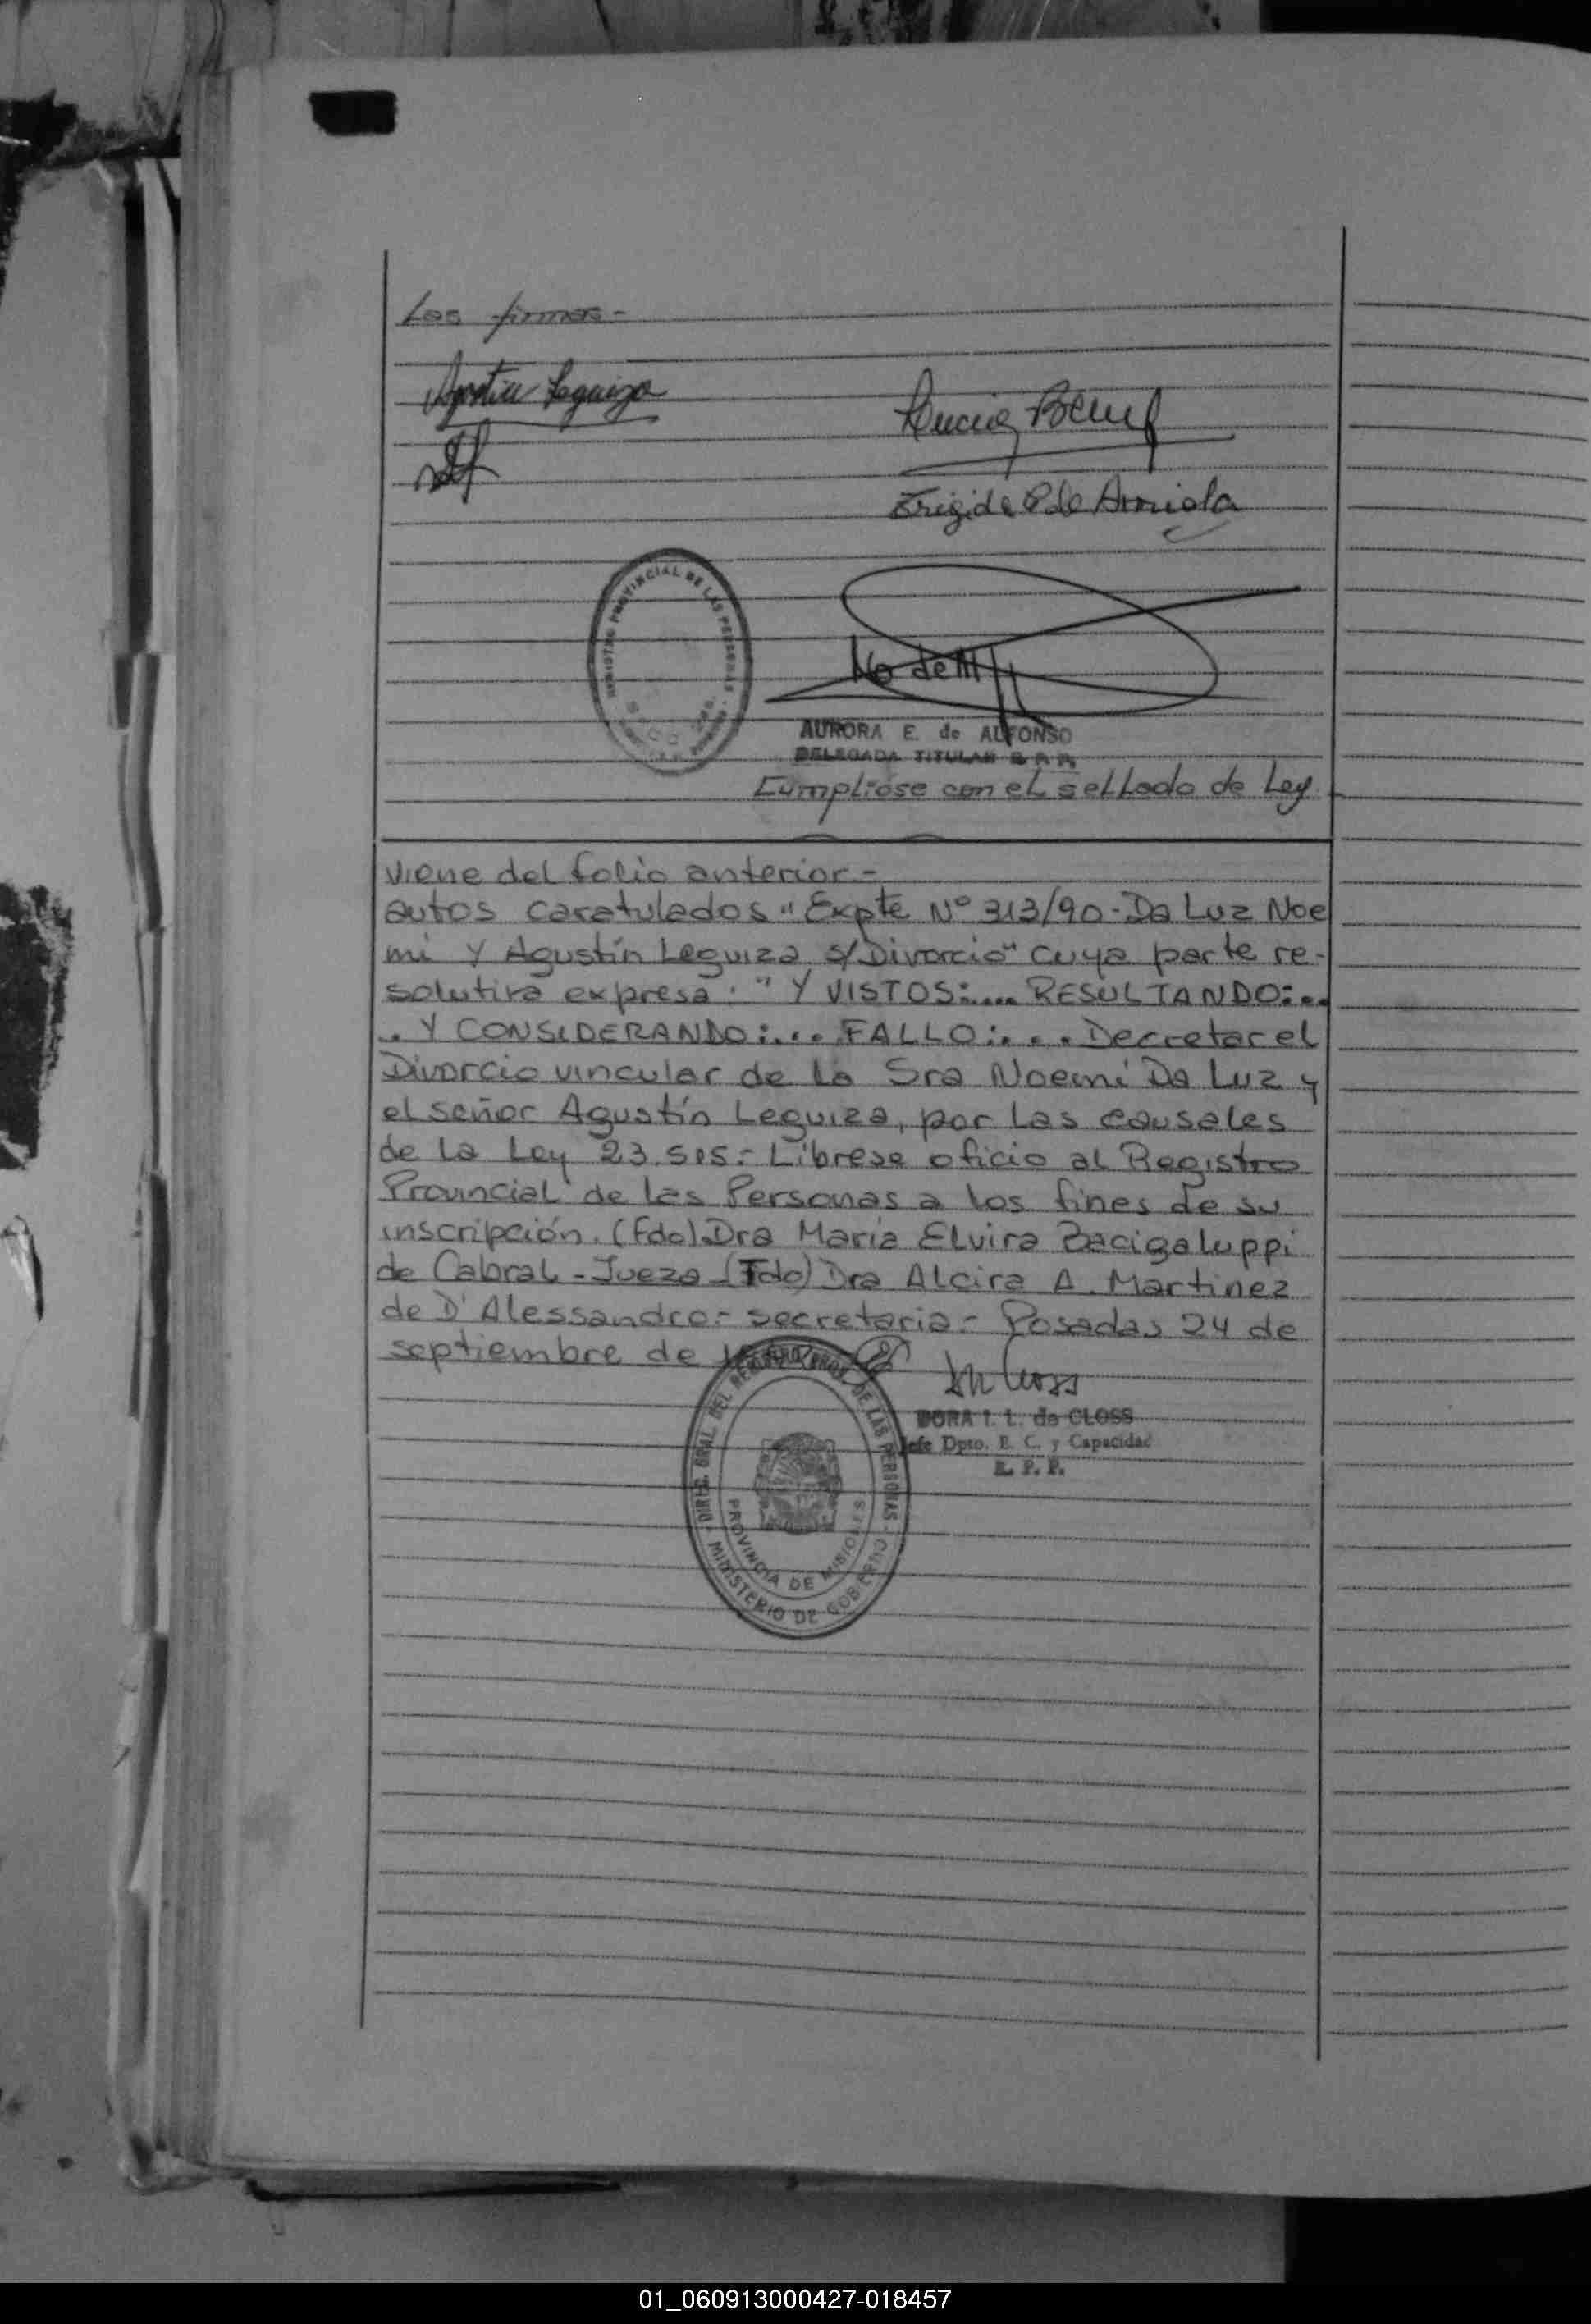 Las firmas -
Agustin Leguiza
Lucia
de Arriola
REGISTRO PROVINCIAL DE LAS PERSONAS
AURORA E. de ALFONSO
DELEGADA TITULAR R P P
Cumplióse con el sellado de Ley.
viene del folio anterior.-
autos caratulados "Expte Nº 313/90 - Da Luz Noe
mi Y Agustín Leguiza s/Divorcio" cuya parte re-
solutiva expresa: "Y VISTOS:.... RESULTANDO:..
.. Y CONSIDERANDO:.... FALLO:.... Decretar el
Divorcio vincular de la Sra Noemí Da Luz y
el señor Agustín Leguiza, por las causales
de la Ley 23.515.- Librese oficio al Registro
Provincial de las Personas a los fines de su
inscripción. (Fdo) Dra María Elvira Bacigaluppi
de Cabral - Jueza - (Fdo) Dra Alcira A. Martinez
de D'Alessandro.- secretaria - Posadas 24 de
septiembre de
DORA I. L. de CLOSS
Jefe Dpto. E. C. y Capacidad
R. P. P.
DIREC. GRAL DEL REGISTRO PROV. DE LAS PERSONAS - MINISTERIO DE GOBIERNO
PROVINCIA DE MISIONES
01_060913000427-018457